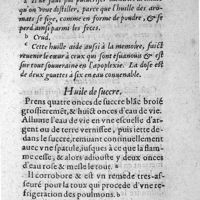 qu'on veut distiller, parce que l'huille des aro-
mats se fige, comme en forme de poudre, & se
perd ainsi parmi les feces.
b Crud.
c Cette huille aide aussi à la memoire, faict
revenir le cœur à ceux qui sont esvanouis & est
sur tout souveraine en l'apoplexie. La dose est
de deux gouttes à six en eau convenable.
Huile de succre.
Prens quatre onces de succre blāc broié
grossierement, & huict onces d'eau de vie.
Allume l'eau de vie en vne escuelle d'ar-
gent ou de terre vernissee, puis iette de-
dans le succre, remuant continuellement
avec vne spatule, iusques à ce que la flam-
me cesse, & alors adiouste y deux onces
d'eau rose & musle le tout.
Il corrobore & est vn remede tres-as-
seuré pour la toux qui procede d'vne re-
frigeration des poulmons.